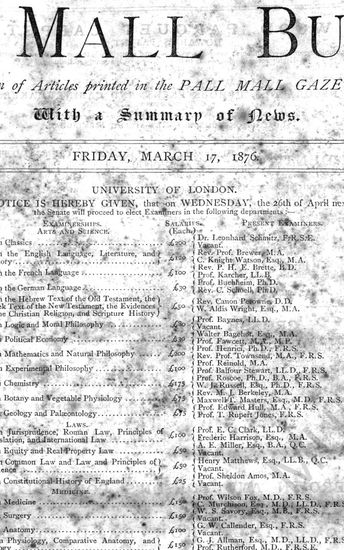 MALL BU
n of Articles printed in the PALL MALL GAZE
With a Summary of News.
FRIDAY, MARCH 17, 1876.
UNIVERSITY OF LONDON.
OTICE IS HEREBY GIVEN, that on WEDNESDAY, the 26th of April nex
the Senate will proceed to elect Examiners in the following departments :—
EXAMINERSHIPS. SALARIES. PRESENT EXAMINERS.
ARTS AND SCIENCE. (Each)
n Classics £200 { Dr. Leonhard Schmitz, F.R.S.E.
Vacant.
n the English Language, Literature, and { Rev. Prof. Brewer, M.A.
tory C. Knight Watson, Esq., M.A.
n the French Language £100 { Rev. P. H. E. Brette, B.D.
Prof. Karcher, LL.B.
n the German Language £30 { Prof. Buchheim, Ph.D.
Rev. C. Schoell, Ph.D.
n the Hebrew Text of the Old Testament, the
ek Text of the New Testament, the Evidences £50 { Rev. Canon Perowne, D.D.
he Christian Religion, and Scripture History W. Aldis Wright, Esq., M.A.
n Logic and Moral Philosophy £80 { Prof. Baynes, LL.D.
Vacant.
n Political Economy £30 { Walter Bagehot, Esq., M.A.
Prof. Fawcett, M.A., M.P.
n Mathematics and Natural Philosophy £200 { Prof. Henrici, Ph.D., F.R.S.
Rev. Prof. Townsend, M.A., F.R.S.
n Experimental Philosophy £100 { Prof. Reinold, M.A.
Prof. Balfour Stewart, LL.D., F.R.S.
n Chemistry £175 { Prof. Roscoe, Ph.D., B.A., F.R.S.
W. J. Russell, Esq., Ph.D., F.R.S.
n Botany and Vegetable Physiology £75 { Rev. M. J. Berkeley, M.A.
Maxwell T. Masters, Esq., M.D., F.R.S.
n Geology and Palæontology £75 { Prof. Edward Hull, M.A., F.R.S.
Prof. T. Rupert Jones, F.R.S.
LAWS.
n Jurisprudence, Roman Law, Principles of { Prof. E. C. Clark, LL.D.
islation, and International Law £100 Frederic Harrison, Esq., M.A.
n Equity and Real Property Law £50 { A. E. Miller, Esq., B.A., Q.C.
Vacant.
n Common Law and Law and Principles of £50 { Henry Matthews, Esq., LL.B., Q.C.
dence Vacant.
n Constitutional History of England £25 { Prof. Sheldon Amos, M.A.
Vacant.
MEDICINE.
n Medicine £150 { Prof. Wilson Fox, M.D., F.R.S.
C. Murchison, Esq., M.D., LL.D., F.R.S.
n Surgery £150 { W. S. Savory, Esq., M.B., F.R.S.
Vacant.
n Anatomy £100 { G. W. Callender, Esq., F.R.S.
Vacant.
n Physiology, Comparative Anatomy, and £150 { G. J. Allman, Esq., M.D., LL.D., F.R.S.
Prof. Rutherford, M.D., F.R.S.E.